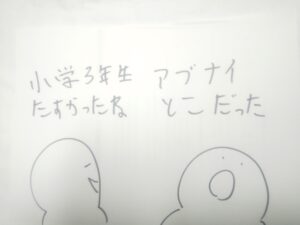 小学3年生
たすかったね
アブナイ
とこだった